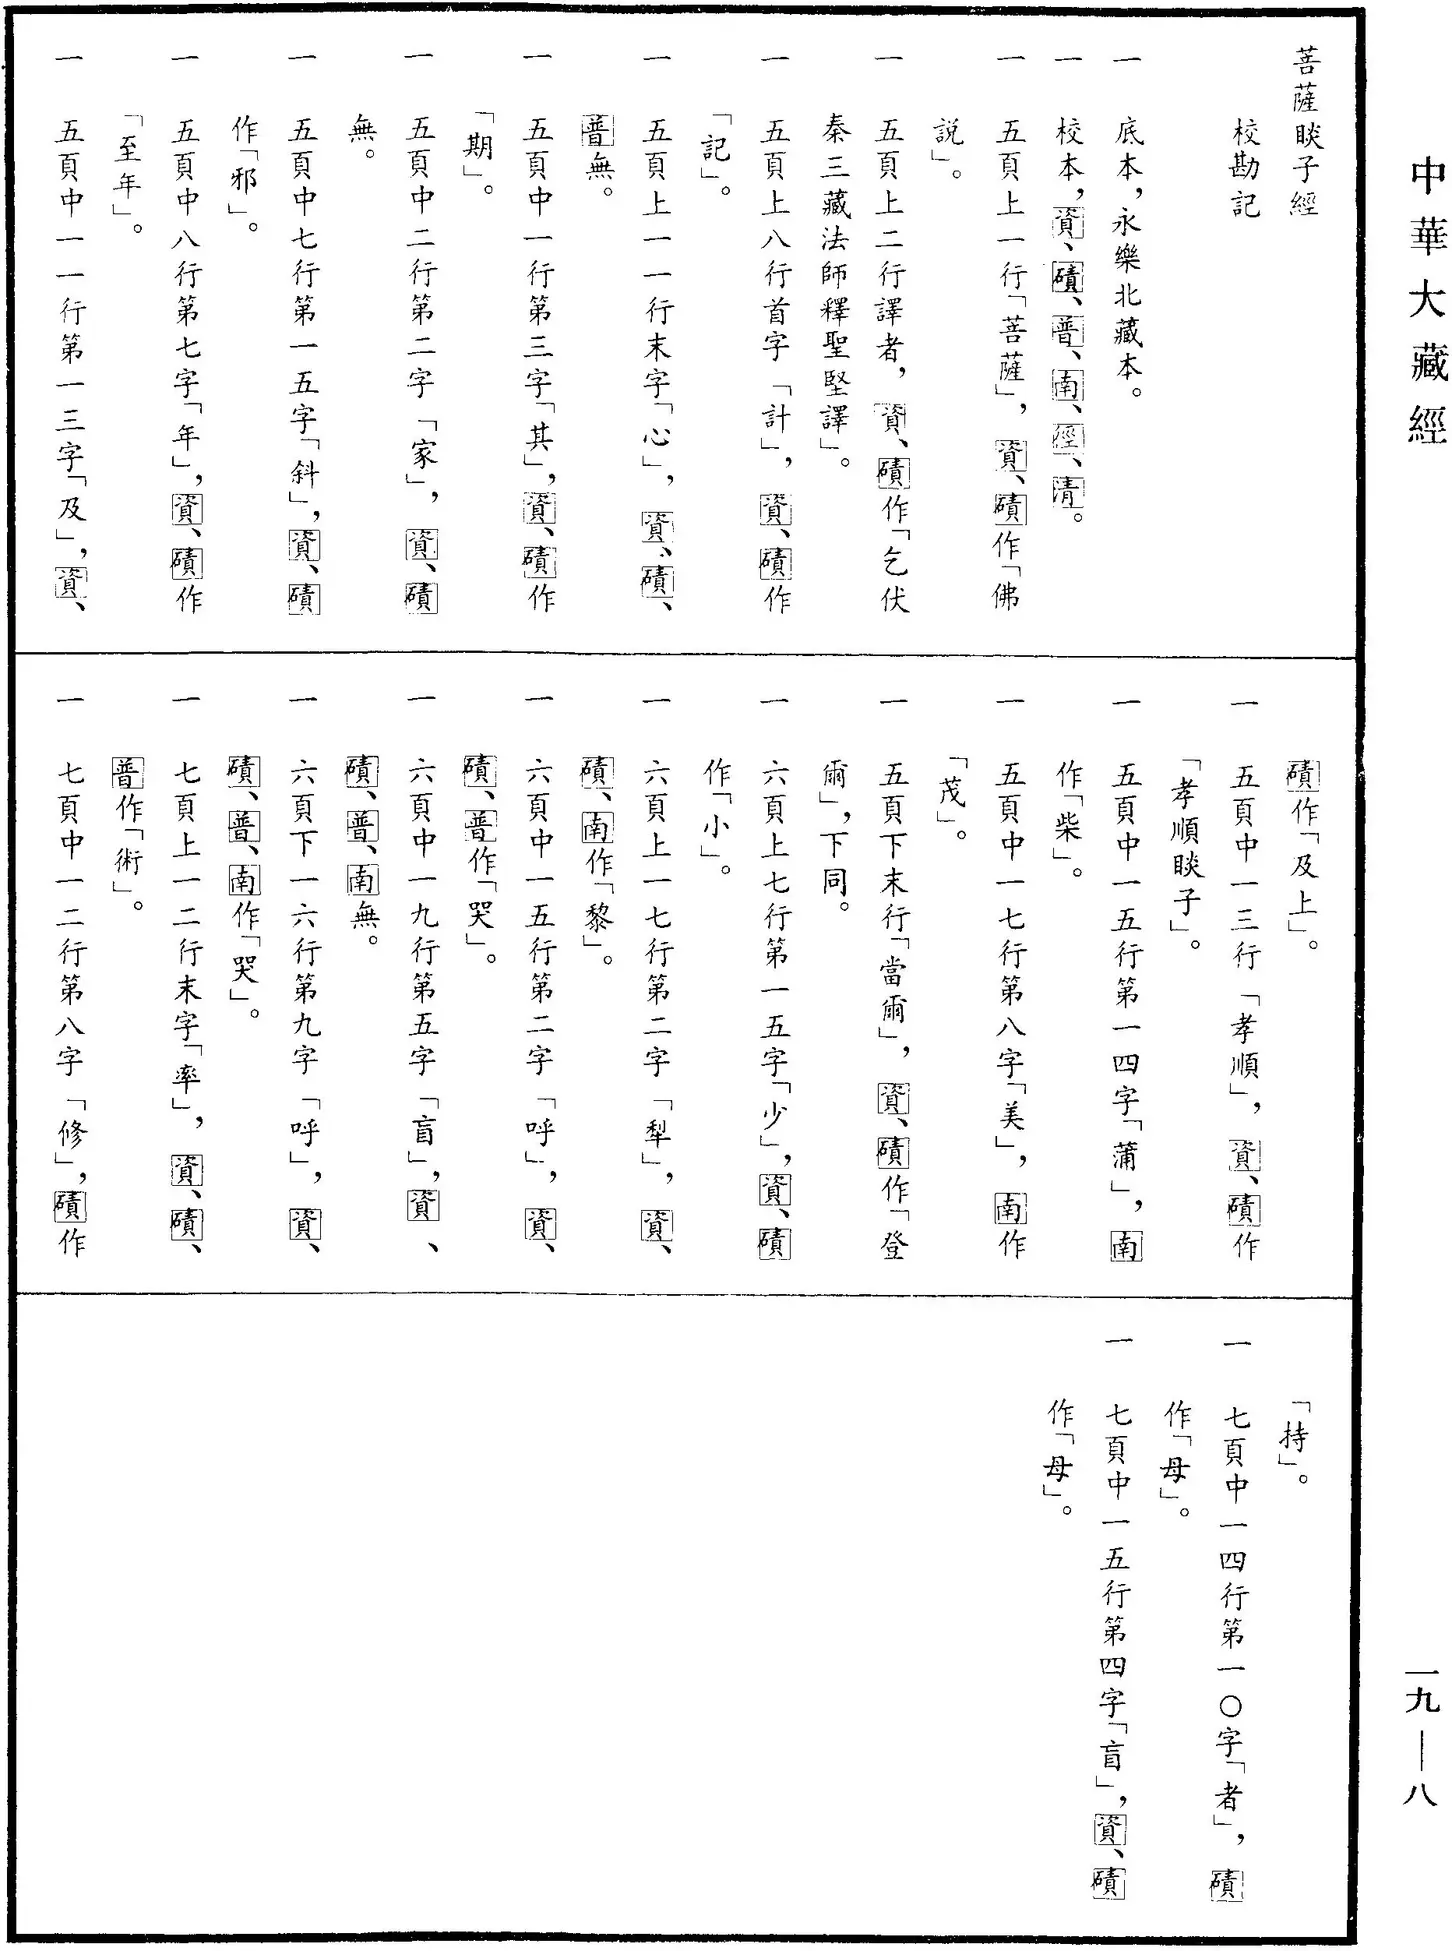 中華大藏經
菩薩睒子經
校勘記
一　底本，永樂北藏本。
一　校本，資、磧、普、南、徑、清。
一　五頁上一行「菩薩」，資、磧作「佛
說」。
一　五頁上二行譯者，資、磧作「乞伏
秦三藏法師釋聖堅譯」。
一　五頁上八行首字「計」，資、磧作
「記」。
一　五頁上一一行末字「心」，資、磧、
普無。
一　五頁中一行第三字「其」，資、磧作
「期」。
一　五頁中二行第二字「家」，資、磧
無。
一　五頁中七行第一五字「斜」，資、磧
作「邪」。
一　五頁中八行第七字「年」，資、磧作
「至年」。
一　五頁中一一行第一三字「及」，資、
磧作「及上」。
一　五頁中一三行「孝順」，資、磧作
「孝順睒子」。
一　五頁中一五行第一四字「蒲」，南
作「柴」。
一　五頁中一七行第八字「美」，南作
「茂」。
一　五頁下末行「當爾」，資、磧作「登
爾」，下同。
一　六頁上七行第一五字「少」，資、磧
作「小」。
一　六頁上一七行第二字「犁」，資、
磧、南作「黎」。
一　六頁中一五行第二字「呼」，資、
磧、普作「哭」。
一　六頁中一九行第五字「盲」，資、
磧、普、南無。
一　六頁下一六行第九字「呼」，資、
磧、普、南作「哭」。
一　七頁上一二行末字「率」，資、磧、
普作「術」。
一　七頁中一二行第八字「修」，磧作
「持」。
一　七頁中一四行第一〇字「者」，磧
作「母」。
一　七頁中一五行第四字「盲」，資、磧
作「母」。
一九—八